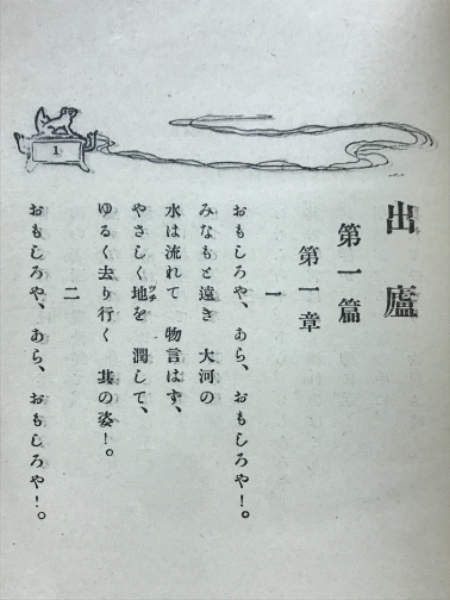 1
出廬
第一篇
第一章
一
おもしろや、あら、おもしろや!。
みなもと遠き 大河の
水は流れて 物言はず、
やさしく地ツチを 潤して、
ゆるく去り行く 其の姿!。
二
おもしろや、あら、おもしろや!。